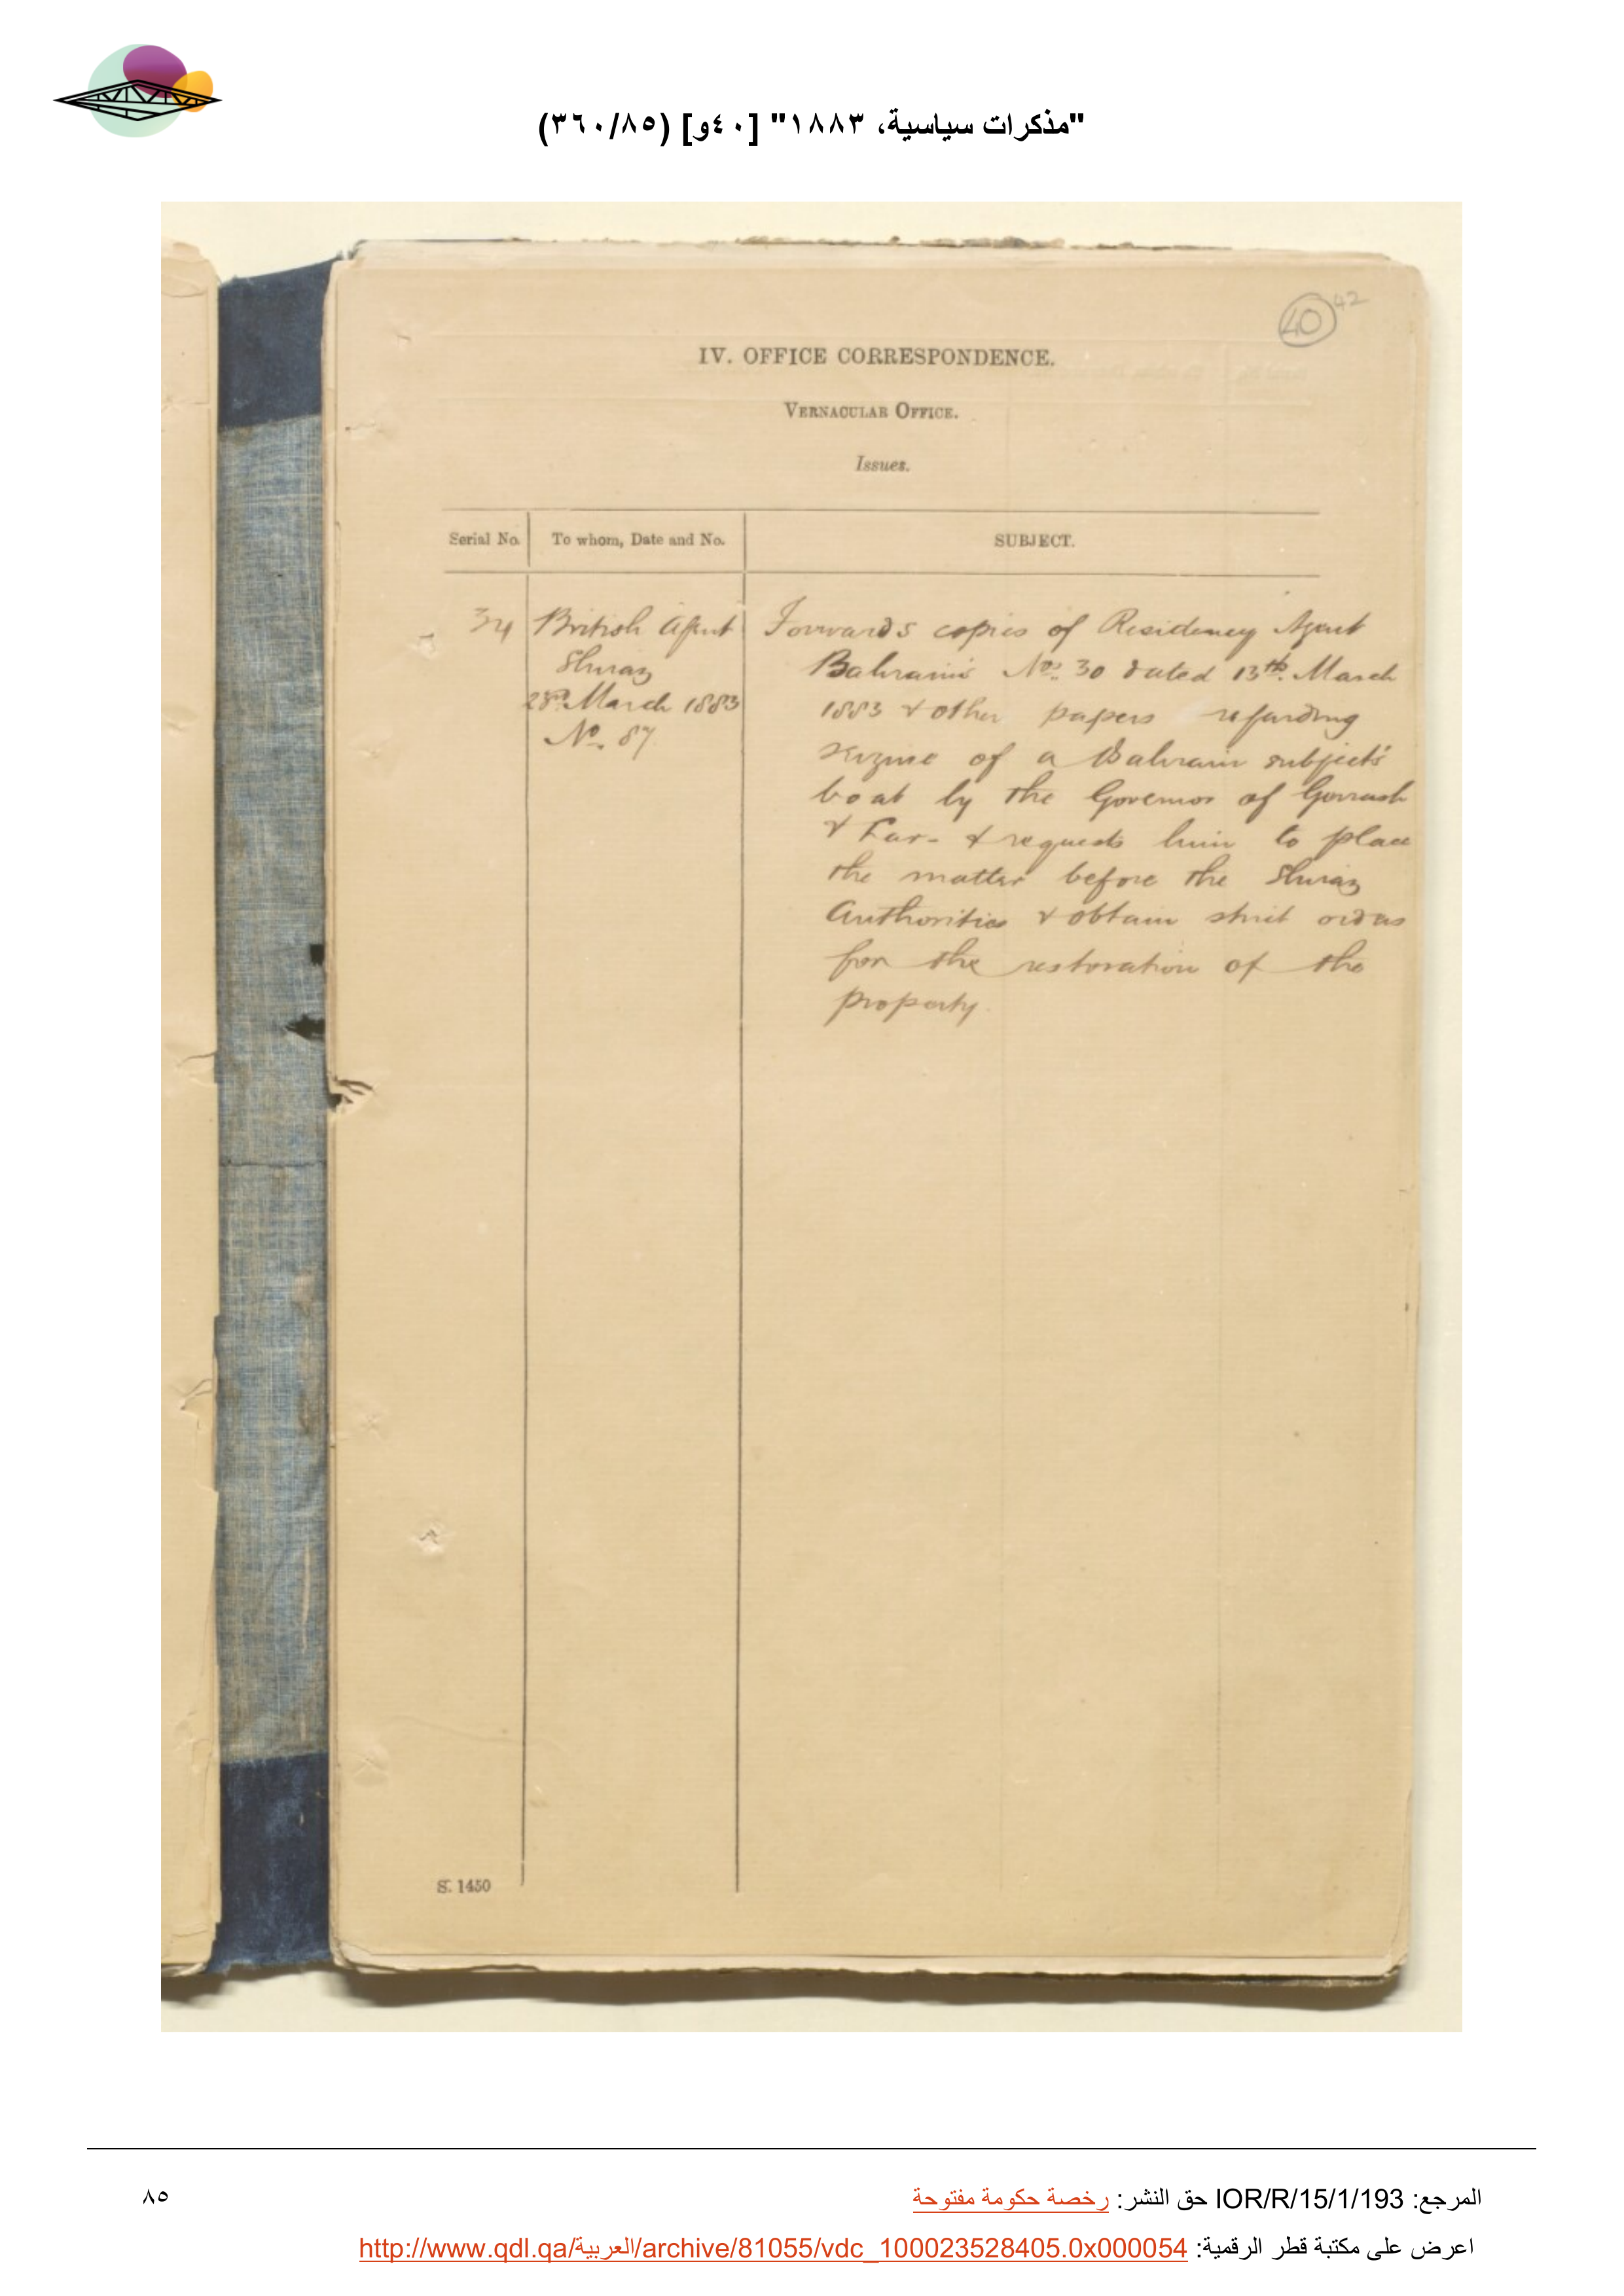 "مذكرات سياسية، ١٨٨٣" [٤٠و] (٣٦٠/٨٥)
40 42
IV. OFFICE CORRESPONDENCE.
VERNACULAR OFFICE.
Issues.
Serial No. To whom, Date and No. SUBJECT.
34 British Agent Forwards copies of Residency Agent
Shiraz Bahrain's No. 30 dated 13th. March
March 1883 1883 & other papers regarding
No. 87 seizure of a Bahrain subject's
boat by the Governor of
& Lar - & requests him to place
the matter before the Shiraz
Authorities & obtain strict orders
for the restoration of the
property.
S. 1450
المرجع: IOR/R/15/1/193 حق النشر: رخصة حكومة مفتوحة
٨٥
اعرض على مكتبة قطر الرقمية: http://www.qdl.qa/العربية/archive/81055/vdc_100023528405.0x000054